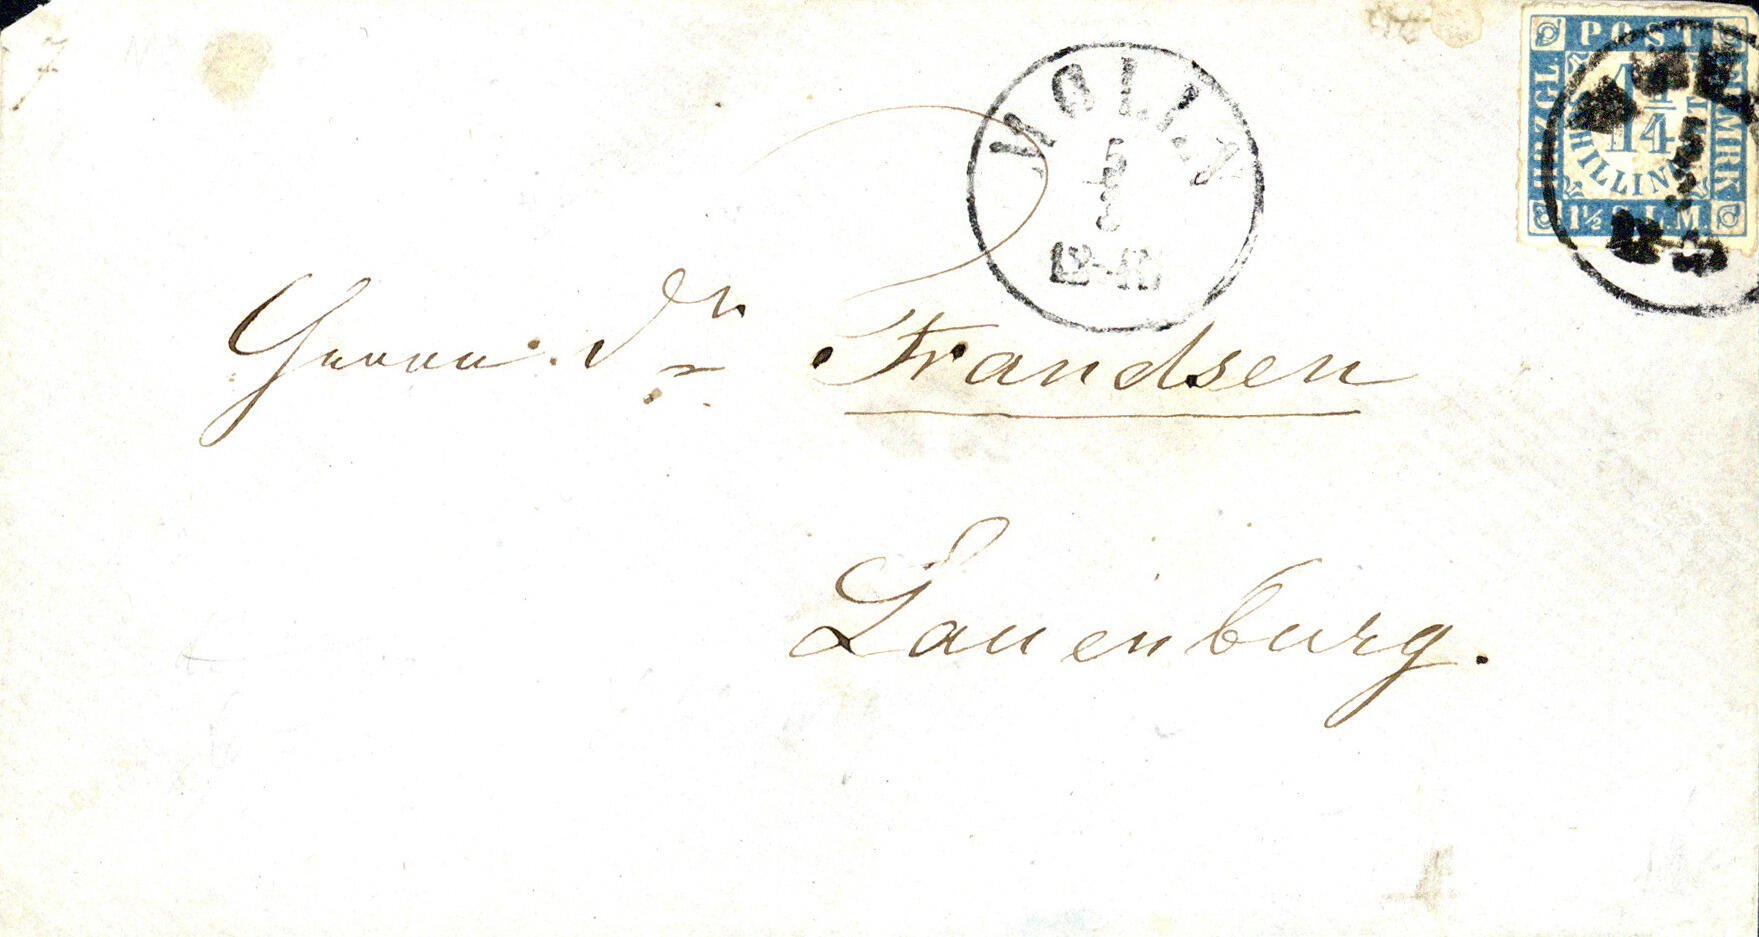 MÖLLN
5
3
12-1N
POST
HRZGL
FRMRK
1 1/4
SCHILLING
1½ S.L.M.
Herrn Dr Frandsen
Lauenburg.